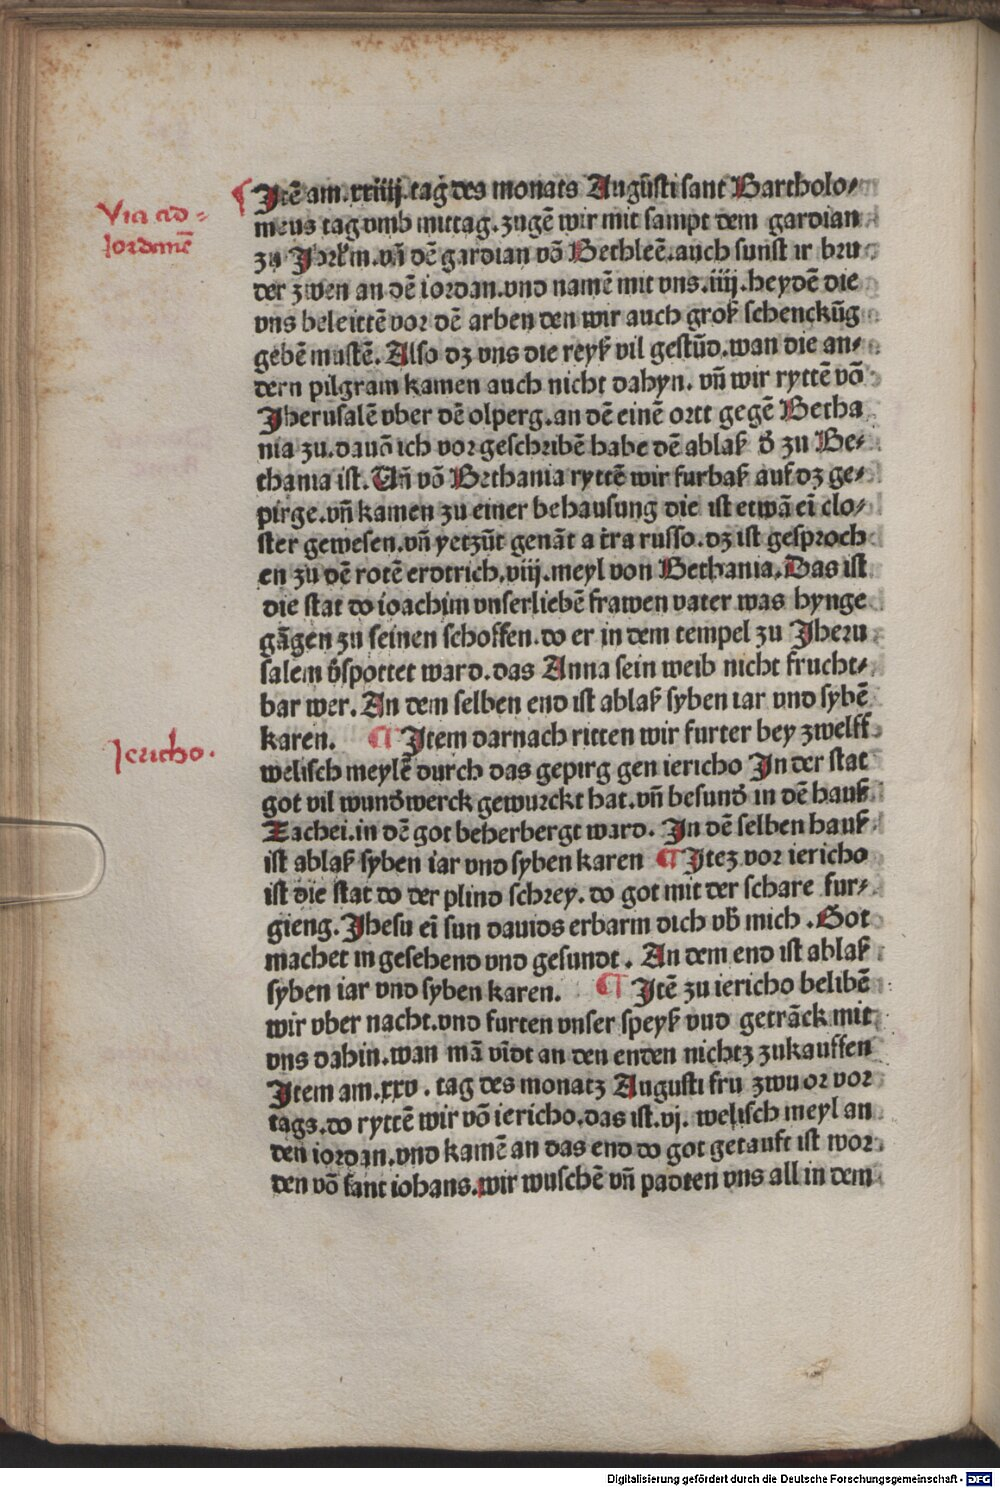 Via ad-
Jordanē
¶ Jtē am.xxiiij.tag des monats Augūsti sant Bartholo⸗
meus tag vmb mittag.zugē wir mit sampt dem gardian
zu Jhrłm.vñ dē gardian võ Bethleē.auch sunst ir bru
der zwen an dē iordan.vnd namē mit vns.iiij.heydē die
vns beleittē vor dē arben den wir auch groß schenckūg
gebē mustē. Also dz vns die reyß vil gestūd.wan die an⸗
dern pilgram kamen auch nicht dahyn. vñ wir ryttē võ
Jherusalē vber dē olperg.an dē einē ortt gegē Betha
nia zu.dauõ ich vor geschribē habe dē ablaß d̕ zu Be⸗
thania ist. Vñ võ Bethania ryttē wir furbaß auf dz ge⸗
pirge.vñ kamen zu einer behausung die ist etwā ei clo⸗
ster gewesen.vñ yetzūt genāt a tra russo.dz ist gesproch
en zu dē rotē erdtrich.viij.meyl von Bethania.Das ist
die stat do ioachim vnserliebē frawen vater was hynge
gāgen zu seinen schoffen.do er in dem tempel zu Jheru
salem v̕spottet ward.das Anna sein weib nicht frucht⸗
bar wer. An dem selben end ist ablaß syben iar vnd sybē
karen. ¶ Jtem darnach ritten wir furter bey zwelff
Jericho.
welisch meylē durch das gepirg gen iericho Jn der stat
got vil wund̕werck gewurckt hat.vñ besund̕ in dē hauß
Zachei.in dē got beherbergt ward. Jn dē selben hauß
ist ablaß syben iar vnd syben karen ¶ Jtez vor iericho
ist die stat do der plind schrey. do got mit der schare fur⸗
gieng. Jhesu ei sun dauids erbarm dich vb̕ mich . Got
machet in gesehend vnd gesundt . An dem end ist ablaß
syben iar vnd syben karen. ¶ Jtē zu iericho belibē
wir vber nacht.vnd furten vnser speyß vnd getrāck mit
vns dahin.wan mā vīdt an den enden nichtz zukauffen
Jtem am.xxv. tag des monatz Augusti fru zwu or vor
tags.do ryttē wir võ iericho.das ist.vj. welisch meyl an
den iordan.vnd kamē an das end do got getauft ist wor
den võ sant iohans.wir wuschē vñ padten vns all in dem
Digitalisierung gefördert durch die Deutsche Forschungsgemeinschaft - DFG